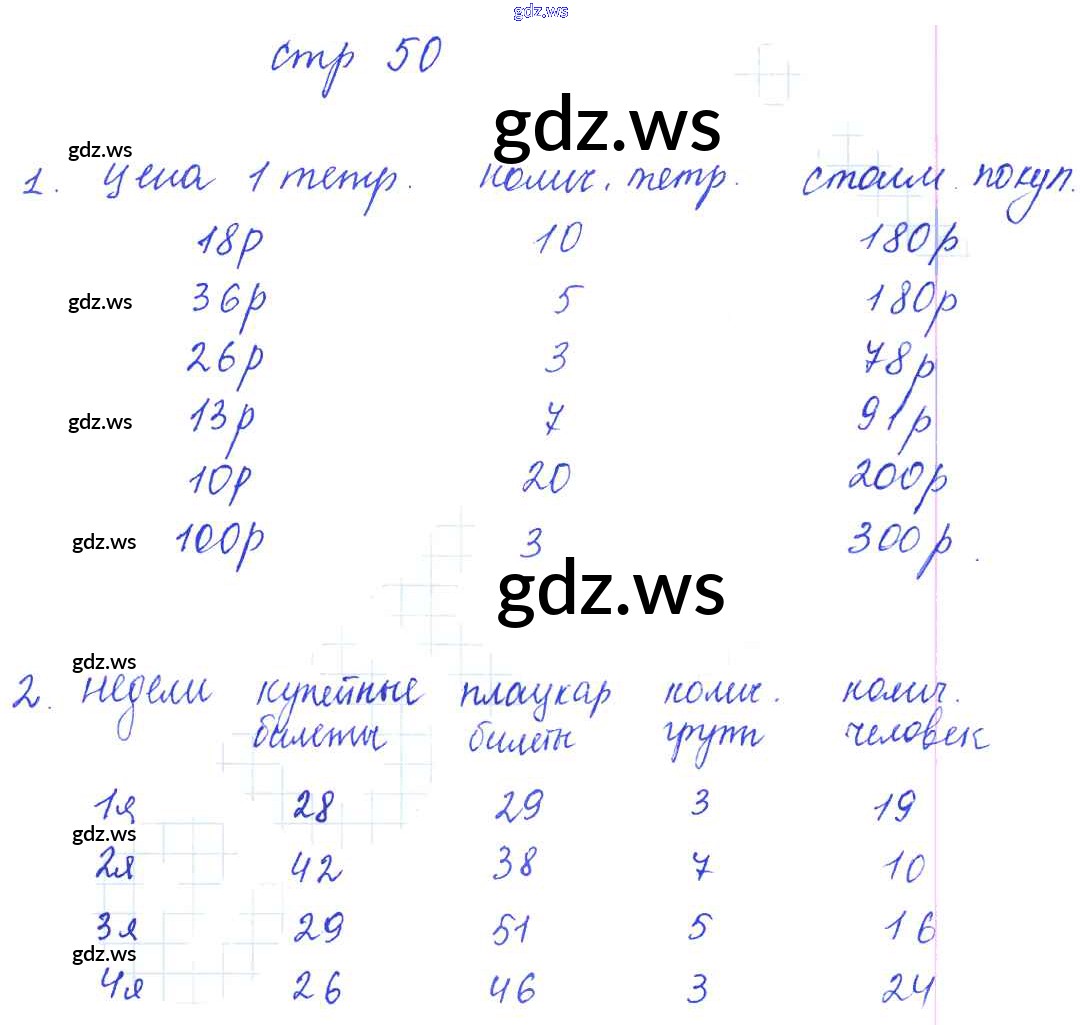 gdz.ws
стр 50
gdz.ws
gdz.ws
1. цена 1 тетр. колич. тетр. стоим. покуп.
18р 10 180р
gdz.ws 36р 5 180р
26р 3 78р
gdz.ws 13р 7 91р
10р 20 200р
gdz.ws 100р 3 300р.
gdz.ws
gdz.ws
2. недели купейные плацкар колич. колич.
билеты билеты групп человек
1я 28 29 3 19
gdz.ws
2я 42 38 7 10
3я 29 51 5 16
gdz.ws
4я 26 46 3 24